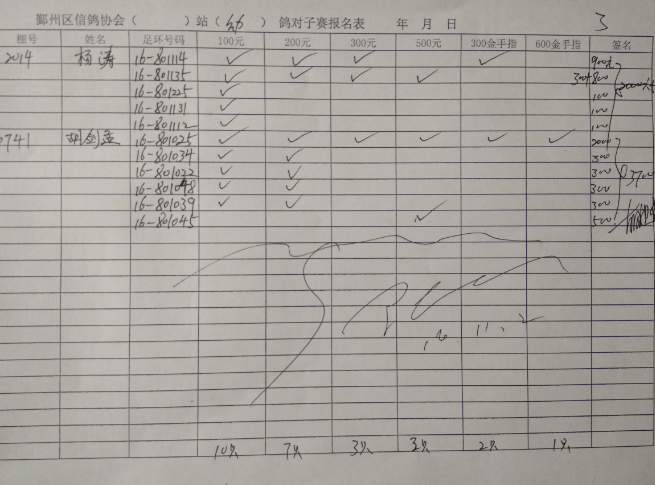 鄞州区信鸽协会（ ）站（ ） 鸽对子赛报名表 年 月 日 3
棚号 姓名 足环号码 100元 200元 300元 500元 300金手指 600金手指 签名
2014 杨涛 16-801114 ✓ ✓ ✓ ✓ 900元
16-801135 ✓ ✓ ✓ ✓ 300+800
16-801225 ✓ 100
16-801131 ✓ 100
16-801112 ✓ 100
0741 胡剑孟 16-801025 ✓ ✓ ✓ ✓ ✓ ✓ 2000
16-801034 ✓ ✓ 300
16-801022 ✓ ✓ 300
16-801048 ✓ ✓ 300
16-801039 ✓ ✓ 300
16-801045 ✓ 500
16.11.2
10只 7只 3只 3只 2只 1只